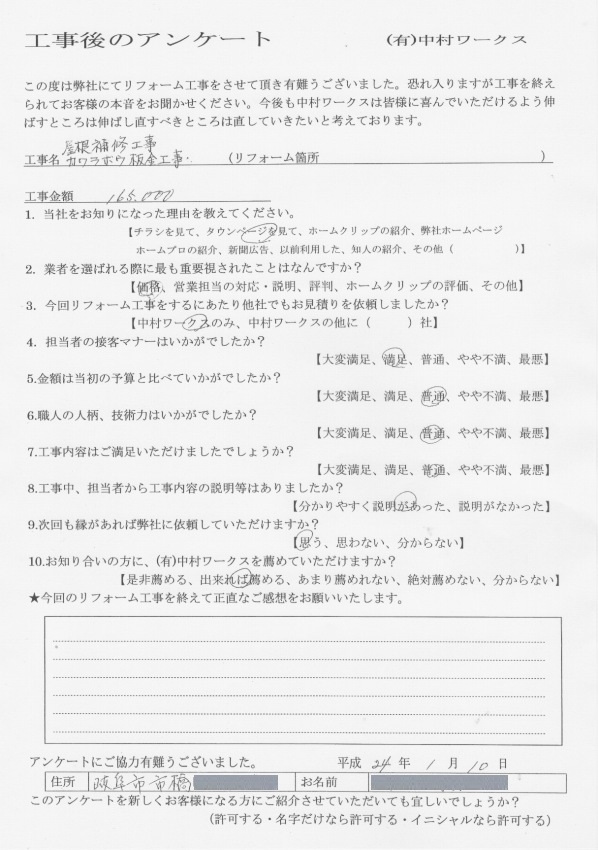 工事後のアンケート (有)中村ワークス
この度は弊社にてリフォーム工事をさせて頂き有難うございました。恐れ入りますが工事を終え
られてお客様の本音をお聞かせください。今後も中村ワークスは皆様に喜んでいただけるよう伸
ばすところは伸ばし直すべきところは直していきたいと考えております。
屋根補修工事
工事名 カワラボウ板金工事. (リフォーム箇所 )
工事金額 165.000
1. 当社をお知りになった理由を教えてください。
【チラシを見て、タウンページを見て、ホームクリップの紹介、弊社ホームページ
ホームプロの紹介、新聞広告、以前利用した、知人の紹介、その他( )】
2. 業者を選ばれる際に最も重要視されたことはなんですか?
【価格、営業担当の対応・説明、評判、ホームクリップの評価、その他】
3. 今回リフォーム工事をするにあたり他社でもお見積りを依頼しましたか?
【中村ワークスのみ、中村ワークスの他に( )社】
4. 担当者の接客マナーはいかがでしたか?
【大変満足、満足、普通、やや不満、最悪】
5.金額は当初の予算と比べていかがでしたか?
【大変満足、満足、普通、やや不満、最悪】
6.職人の人柄、技術力はいかがでしたか?
【大変満足、満足、普通、やや不満、最悪】
7.工事内容はご満足いただけましたでしょうか?
【大変満足、満足、普通、やや不満、最悪】
8.工事中、担当者から工事内容の説明等はありましたか?
【分かりやすく説明があった、説明がなかった】
9.次回も縁があれば弊社に依頼していただけますか?
【思う、思わない、分からない】
10.お知り合いの方に、(有)中村ワークスを薦めていただけますか?
【是非薦める、出来れば薦める、あまり薦めれない、絶対薦めない、分からない】
★今回のリフォーム工事を終えて正直なご感想をお願いいたします。
アンケートにご協力有難うございました。 平成 24 年 1 月 10 日
住所 岐阜市市橋 お名前
このアンケートを新しくお客様になる方にご紹介させていただいても宜しいでしょうか?
(許可する・名字だけなら許可する・イニシャルなら許可する)